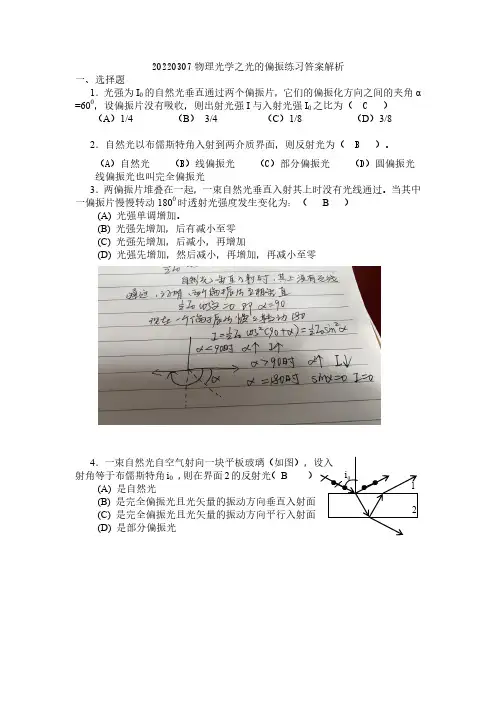 20220307 物理光学之光的偏振练习答案解析
一、选择题
1．光强为 I0 的自然光垂直通过两个偏振片，它们的偏振化方向之间的夹角 α
=60⁰，设偏振片没有吸收，则出射光强 I 与入射光强 I0 之比为（ C ）
（A）1/4 （B） 3/4 （C）1/8 （D）3/8
2．自然光以布儒斯特角入射到两介质界面，则反射光为（ B ）。
（A）自然光 （B）线偏振光 （C）部分偏振光 （D）圆偏振光
线偏振光也叫完全偏振光
3．两偏振片堆叠在一起，一束自然光垂直入射其上时没有光线通过。当其中
一偏振片慢慢转动 180⁰ 时透射光强度发生变化为：（ B ）
(A) 光强单调增加。
(B) 光强先增加，后有减小至零
(C) 光强先增加，后减小，再增加
(D) 光强先增加，然后减小，再增加，再减小至零
½I0
自然光垂直入射时，其上没有光线
通过，说明，两个偏振片互相垂直
½I0 cos²α=0 即 α=90
现在一个偏振片慢慢转动180
I=½I0 cos²(90+α)=½I0 sin²α
α<90时 α↑ I↑
α>90时 α↑ I↓
α=180时 sinα=0 I=0
α
4．一束自然光自空气射向一块平板玻璃（如图），设入
射角等于布儒斯特角 i0 ，则在界面 2 的反射光（ B ）
(A) 是自然光
(B) 是完全偏振光且光矢量的振动方向垂直入射面
(C) 是完全偏振光且光矢量的振动方向平行入射面
(D) 是部分偏振光
i0
1
2